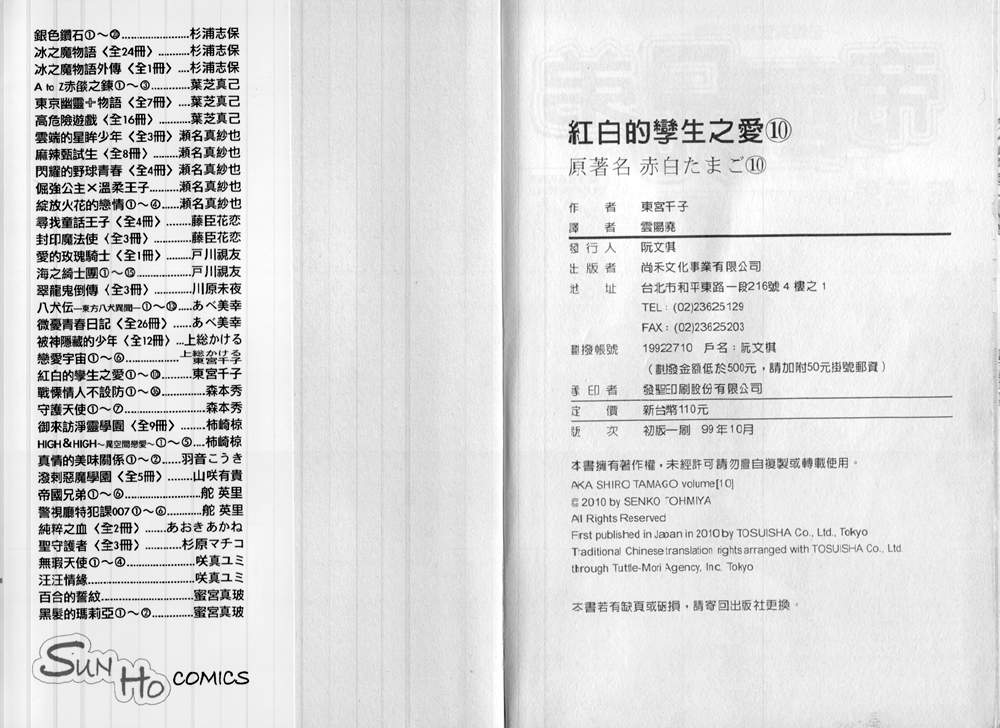 銀色鑽石①～⑳..................杉浦志保
冰之魔物語〈全24冊〉...........杉浦志保
冰之魔物語外傳〈全1冊〉....杉浦志保
A to Z赤燄之鍊①～③............葉芝真己
東京幽靈╬物語〈全7冊〉....葉芝真己
高危險遊戲〈全16冊〉..........葉芝真己
雲端的星眸少年〈全3冊〉瀬名真紗也
麻辣甄試生〈全8冊〉.........瀬名真紗也
閃耀的野球青春〈全4冊〉瀬名真紗也
倔強公主×溫柔王子..........瀬名真紗也
綻放火花的戀情①～④.....瀬名真紗也
尋找童話王子〈全4冊〉........藤臣花恋
封印魔法使〈全3冊〉............藤臣花恋
愛的玫瑰騎士〈全1冊〉........戸川視友
海之綺士團①～⑮.................戸川視友
翠龍鬼倒傳〈全3冊〉...........川原未夜
八犬伝—東方八犬異聞—①～⑬.....あべ美幸
微憂青春日記〈全26冊〉......あべ美幸
被神隱藏的少年〈全12冊〉...上総かける
戀愛宇宙①～⑥..................
紅白的孿生之愛①～⑩...........東宮千子
戰慄情人不設防①～⑯..............森本秀
守護天使①～⑦........................森本秀
御來訪淨靈學園〈全9冊〉........柿崎椋
HIGH＆HIGH～異空間戀愛～①～⑤....柿崎椋
真情的美味關係①～②......羽音こうき
潑剌惡魔學園〈全5冊〉........山咲有貴
帝國兄弟①～⑥......................舵 英里
警視廳特犯課007①～⑥............舵 英里
純粹之血〈全2冊〉.......あおきあかね
聖守護者〈全3冊〉............杉原マチコ
無瑕天使①～④.......................咲真ユミ
汪汪情緣...................................咲真ユミ
百合的誓紋................................蜜宮真玻
黑髮的瑪莉亞①～②..............蜜宮真玻
SUN HO COMICS
紅白的孿生之愛⑩
原著名 赤白たまご⑩
作 者 東宮千子
譯 者 雲陽堯
發行人 阮文棋
出版者 尚禾文化事業有限公司
地 址 台北市和平東路一段216號4樓之1
TEL：(02)23625129
FAX：(02)23625203
劃撥帳號 19922710 戶名：阮文棋
（劃撥金額低於500元，請加附50元掛號郵資）
承印者 發聖印刷股份有限公司
定 價 新台幣110元
版 次 初版一刷 99年10月
本書擁有著作權，未經許可請勿擅自複製或轉載使用。
AKA SHIRO TAMAGO volume[10]
© 2010 by SENKO TOHMIYA
All Rights Reserved
First published in Japan in 2010 by TOSUISHA Co., Ltd., Tokyo
Traditional Chinese translation rights arranged with TOSUISHA Co., Ltd.
through Tuttle-Mori Agency, Inc. Tokyo
本書若有缺頁或破損，請寄回出版社更換。